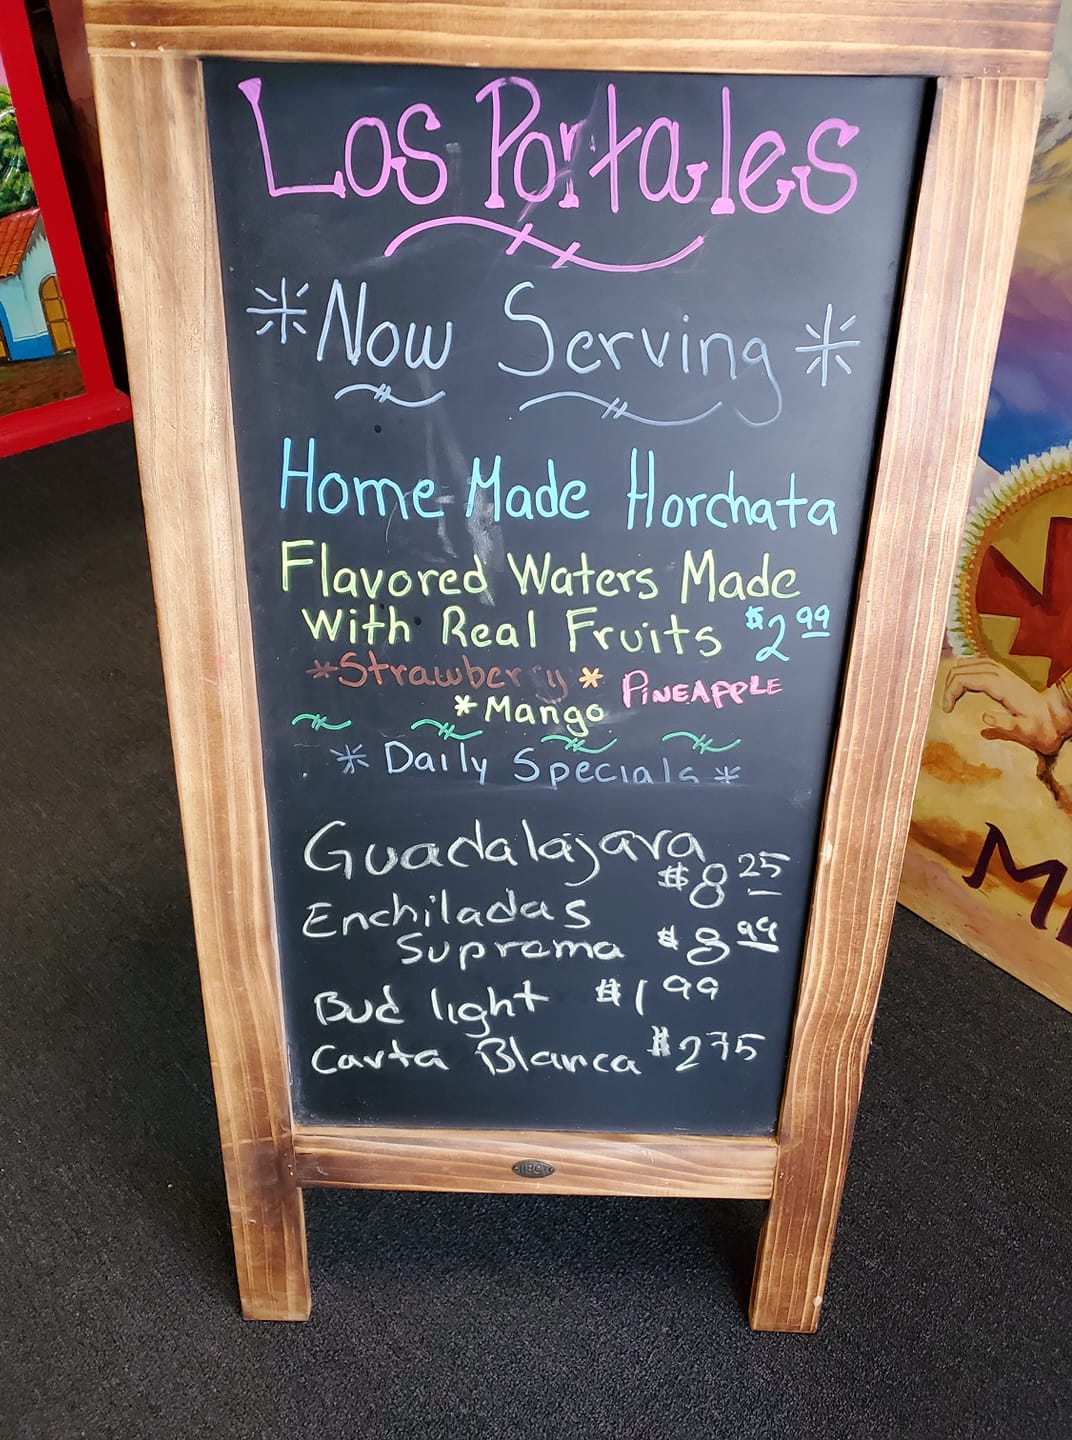 Los Portales
*Now Serving*
Home Made Horchata
Flavored Waters Made
with Real Fruits $2.99
*Strawberry* PINEAPPLE
*Mango
*Daily Specials*
Guadalajara $8.25
Enchiladas
Suprema $8.99
Bud light $1.99
Carta Blanca $275